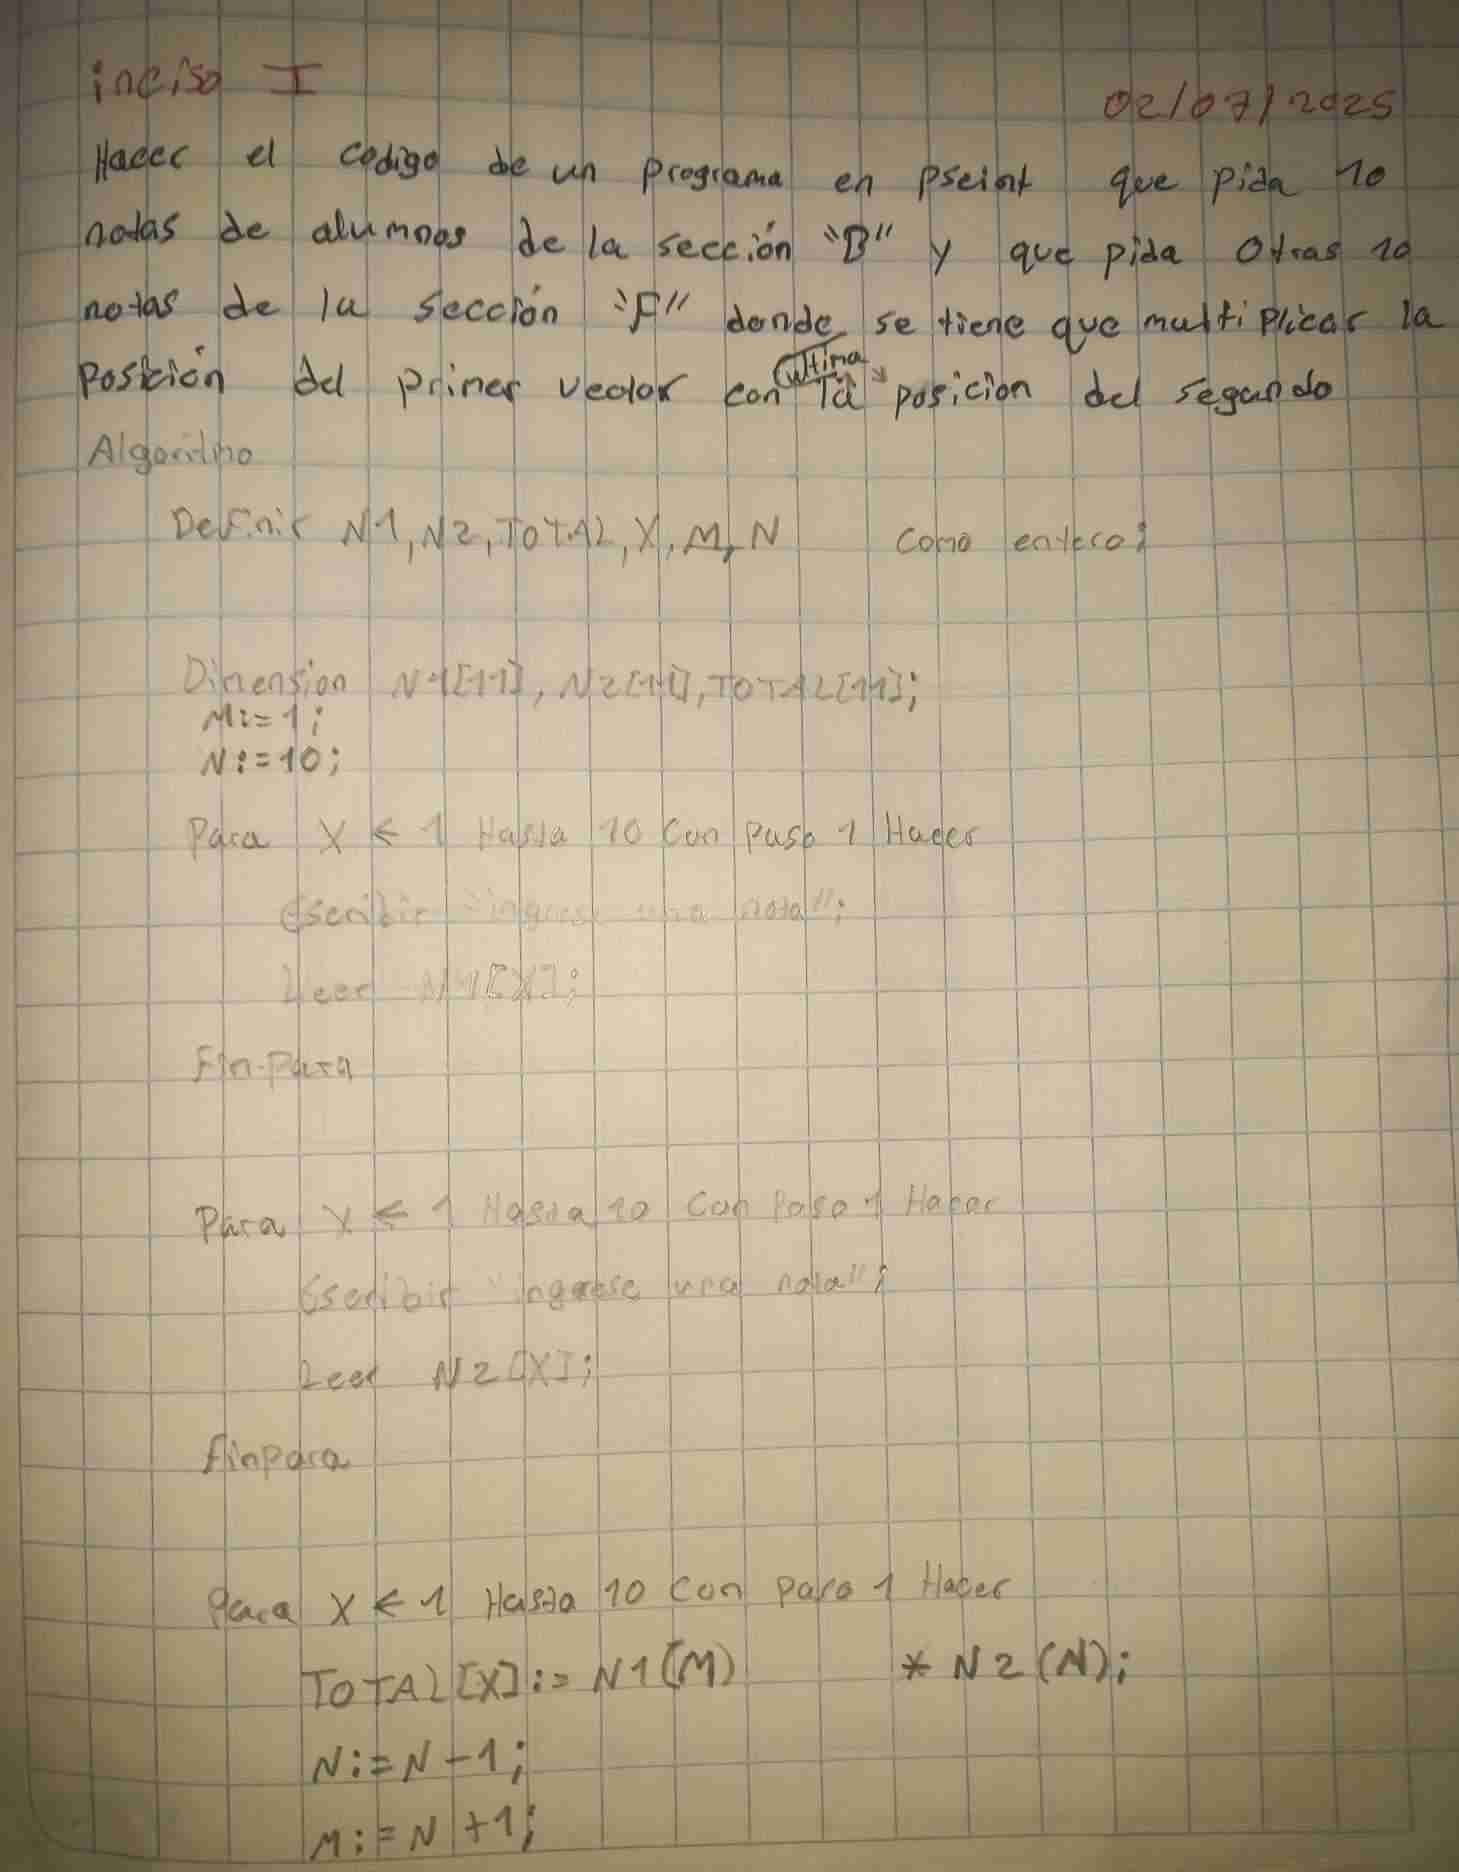 inciso I
02/07/2025
Hacer el codigo de un programa en pseint que pida 10
notas de alumnos de la sección "B" y que pida Otras 10
notas de la sección "F" donde se tiene que multiplicar la
posición del primer vector con la última posicion del segundo
Algoritmo
Definir N1, N2, TOTAL, X, M, N como entero;
Dimension N1[11], N2[11], TOTAL[11];
M:=1;
N:=10;
Para X ← 1 Hasta 10 Con paso 1 Hacer
Escribir "ingrese una nota";
Leer N1[X];
Fin-Para
Para X ← 1 Hasta 10 Con Paso 1 Hacer
Escribir "ingrese una nota";
Leer N2[X];
Finpara
Para X ← 1 Hasta 10 Con paso 1 Hacer
TOTAL[X]:= N1(M) * N2(N);
N:=N-1;
M:=N+1;